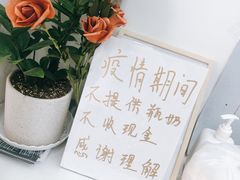 疫情期间
不提供瓶奶
不收现金
感谢理解